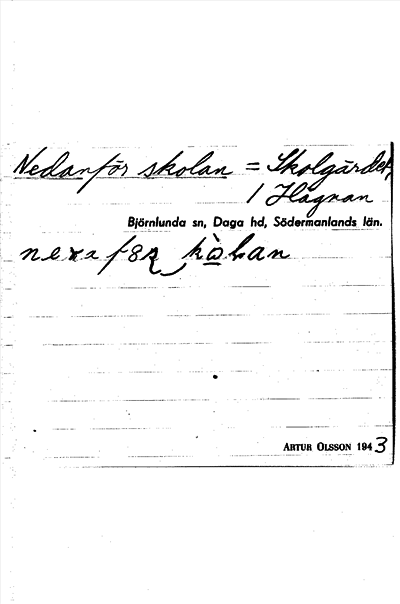 Nedanför skolan = Skolgärdet,
1 Hagnan
Björnlunda sn, Daga hd, Södermanlands län.
ARTUR OLSSON 1943